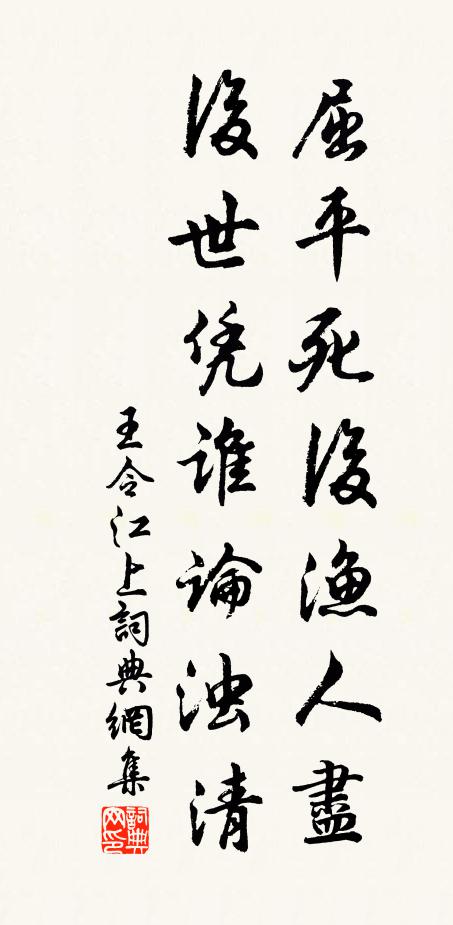 屈平死後漁人盡
後世凭誰論浊清
王令江上詞典網集
詞典网印